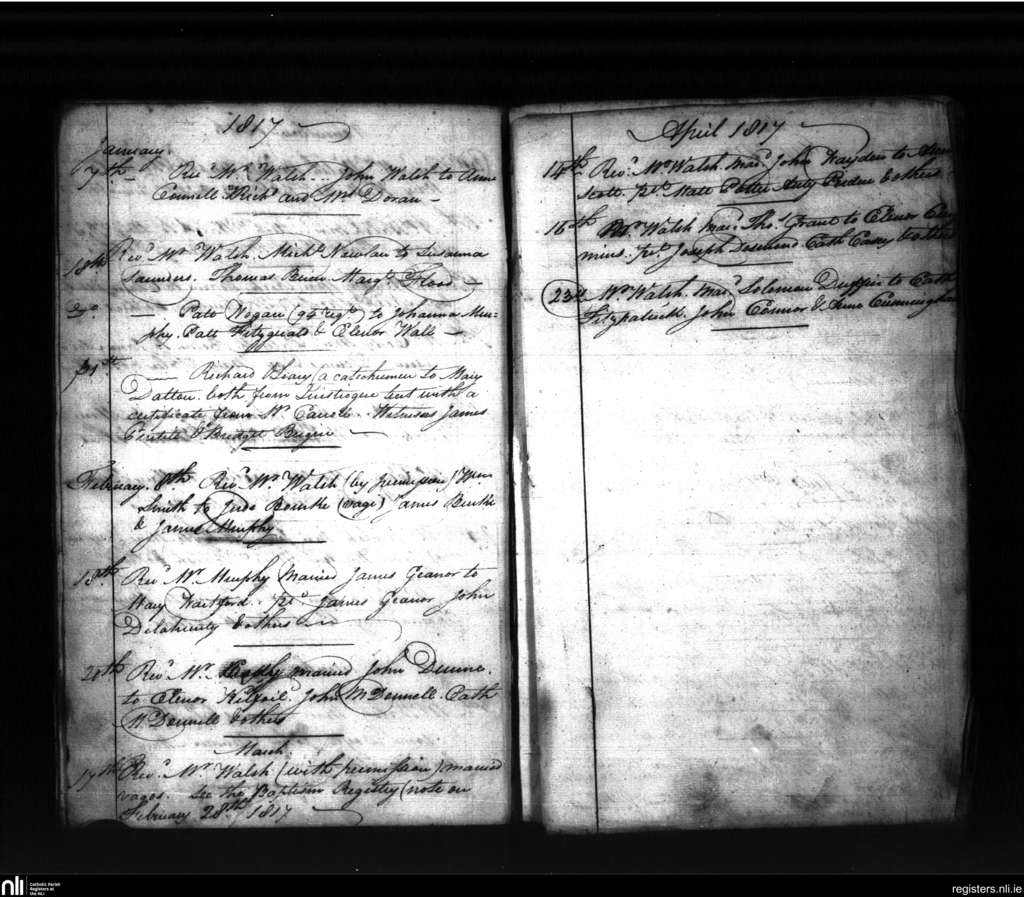 1817
January.
7th — Revd. Mr. Walsh .. John Walsh to Anne
Connell Richd. and Wm. Doran —
18th Revd. Mr. Walsh. Michl. Nowlan to Susanna
Saunders. Thomas Margt. Flood —
— Patt Hogan (94 regt.) to Johanna Mur-
phy. Patt Fitzgerald & Elenor Wall —
31st
— Richard (a catechumen to Mary
Dalton. both from but with a
certificate from Mr. Witnesses James
& Bridget
February. 8th Revd. Mr. Walsh (by permission) Wm.
Smith to Judo Bourke (vagi) James Burke
& James Murphy
13th Revd. Mr. Murphy married James Geanor to
Mary pt. James Geanor John
& others
Revd. Mr. married John Dunne.
to Elenor John McDonnell. Cath
McDonnell & others
March.
17th Revd. Mr. Walsh (with permission) married
vagos. See the Baptism Registry (note on
February 28th 1817
April 1817
14th Revd. Mr. Walsh mard. John Hayden to Anne
Scott. & others
16th Mr. Walsh mard. Thos. Grant to Elenor Cum
mins. pt. Joseph Cath Casey & others
23d Mr. Walsh. mard. Soloman to Cath
Fitzpatrick. John Connor & Anne Cunningham
nli
Catholic Parish
Registers at
the NLI
registers.nli.ie